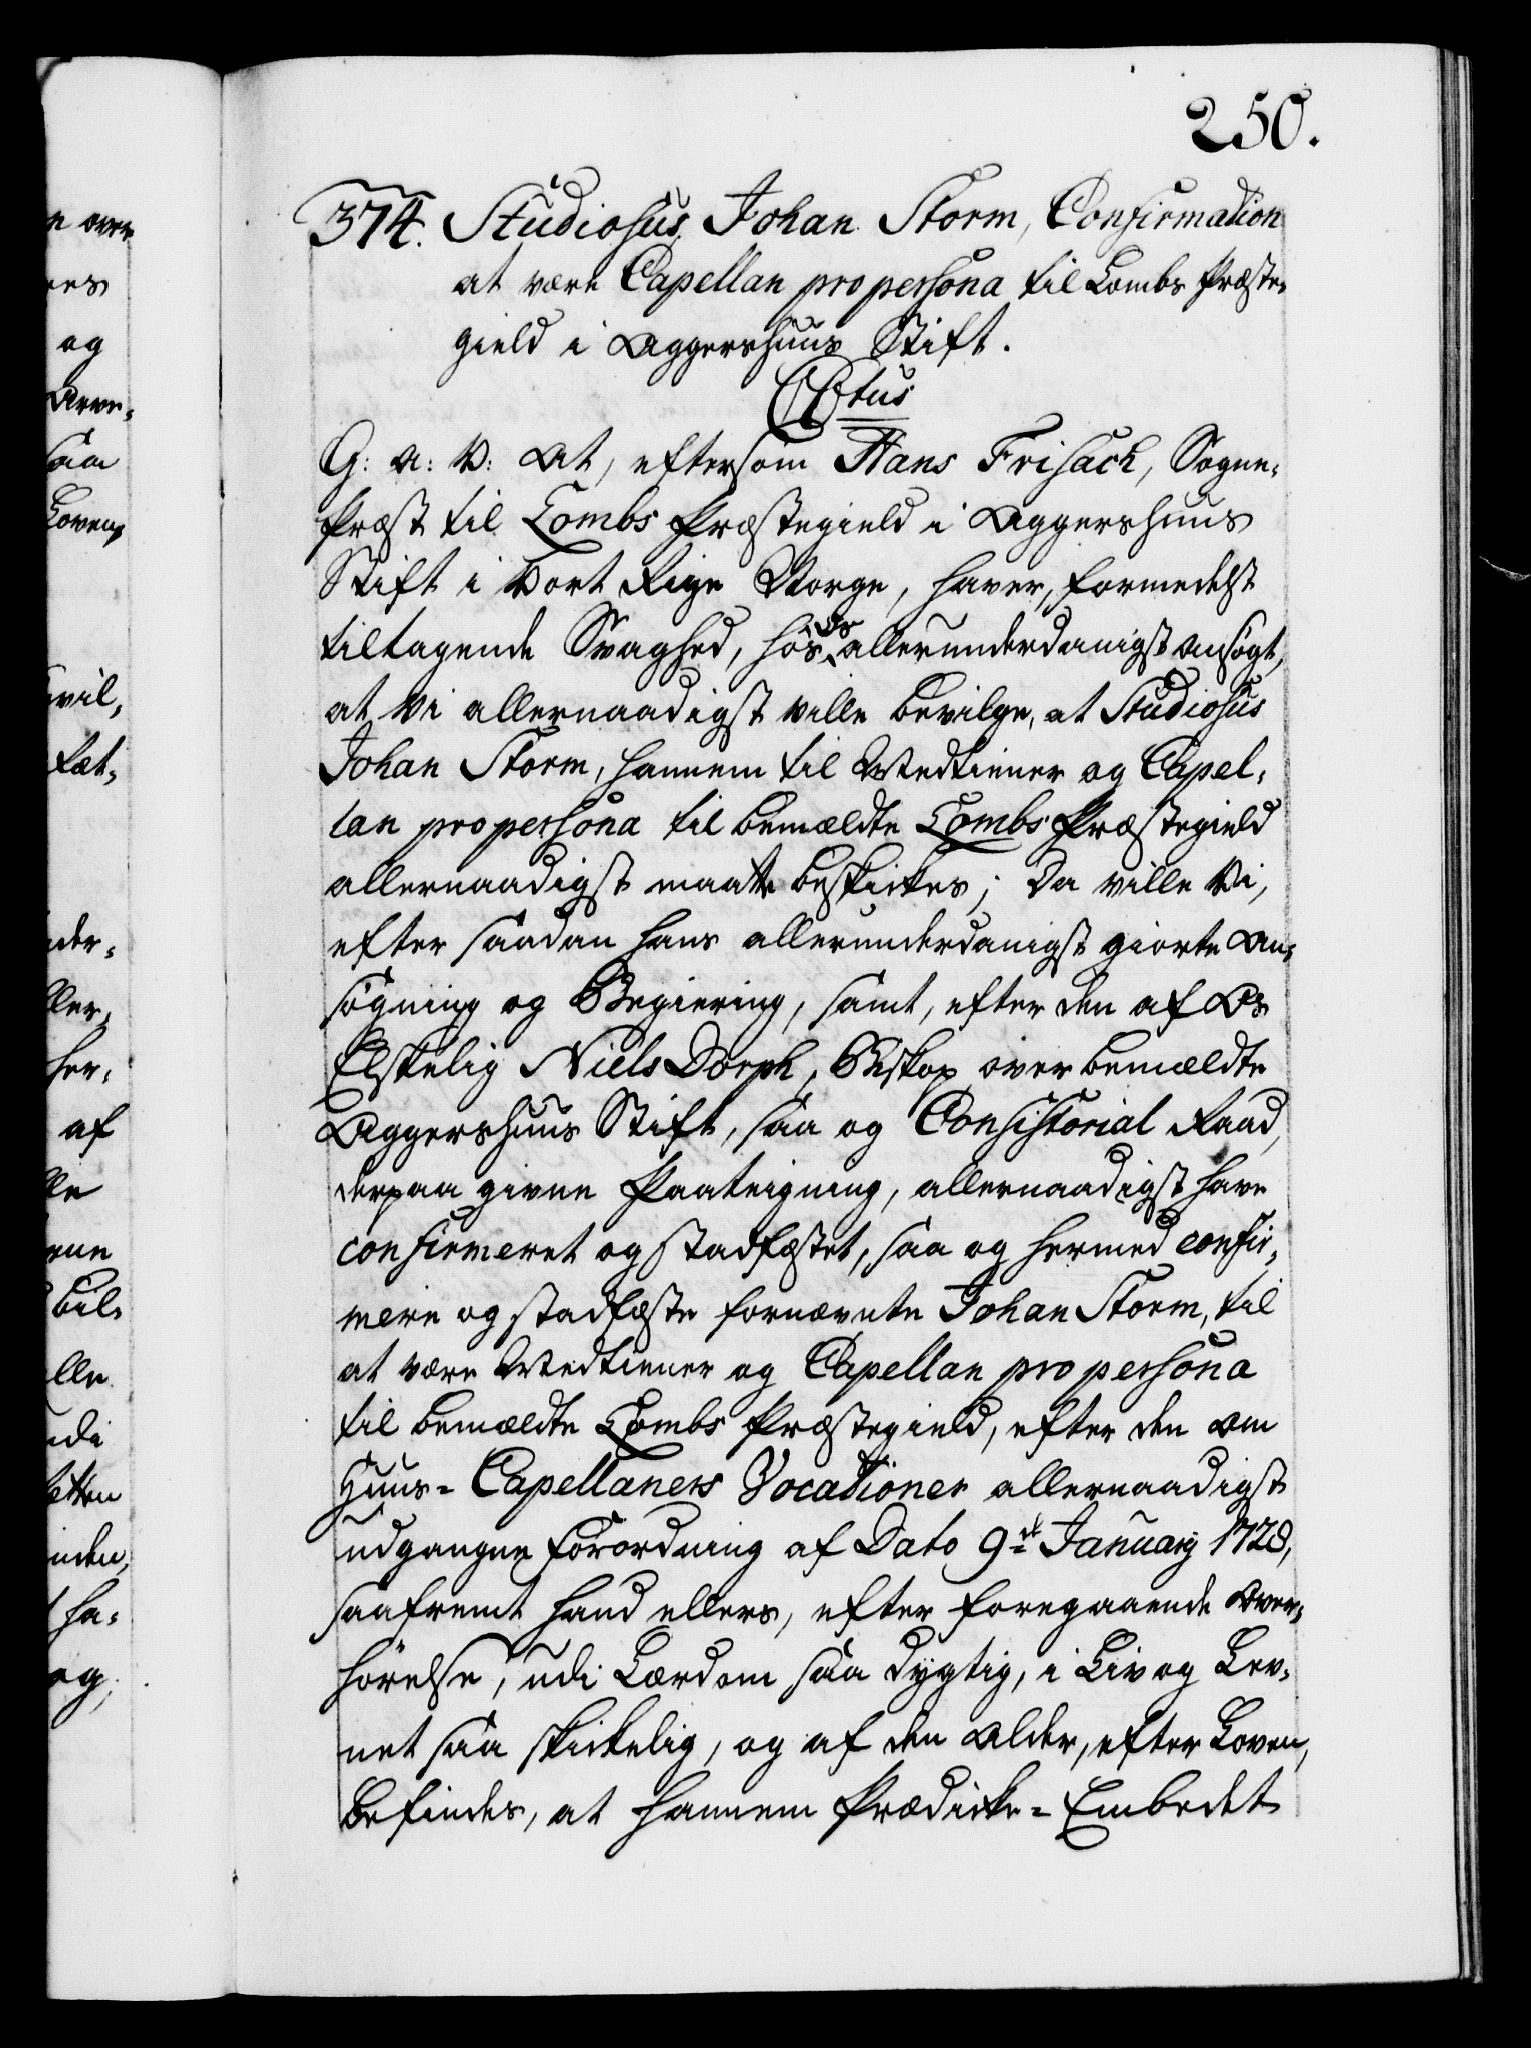 250.
374. Studiosus Johan Storm, Confirmation
at være Capellan pro persona til Lombs Præste-
gield i Aggershuus Stift.
CStus
G: A: V: At, eftersom Hans Frisach, Sogne-
Præst til Lombs Præstegield i Aggershuus
Stift i Vort Rige Norge, haver, formedelst
tiltagende Svaghed, hos Os allerunderdanigst ansøgt,
at Vi allernaadigst ville bevilge, at Studiosus
Johan Storm, hannem til Medtiener og Capel-
lan pro persona til bemældte Lombs Præstegield
allernaadigst maatte beskickes; Da ville Vi,
efter saadan hans allerunderdanigst giorte An-
søgning og Begiering, samt, efter den af Os
Elskelig Niels Dorph, Biskop over bemældte
Aggershuus Stift, saa og Consistorial Raad,
derpaa givne Paategning, allernaadigst have
confirmeret og stadfæstet, saa og hermed confir-
mere og stadfæste fornævnte Johan Storm, til
at være Medtiener og Capellan pro persona
til bemældte Lombs Præstegield, efter den om
Huus-Capellaners Vocationer allernaadigst
udgangne Forordning af Dato 9de Januarij 1728,
saafremt hand ellers, efter foregaaende Over-
hørelse, udi Lærdom saa dygtig, i Liv og Lev-
net saa skikkelig, og af den Alder, efter Loven,
befindes, at hannem Prædicke-Embedet
n over
res
og
Arve-
saa
Loven,
vil,
fat,
der-
ller,
her-
af
lle
ene
bil-
lle
udi
etten
nden,
ha-
og,